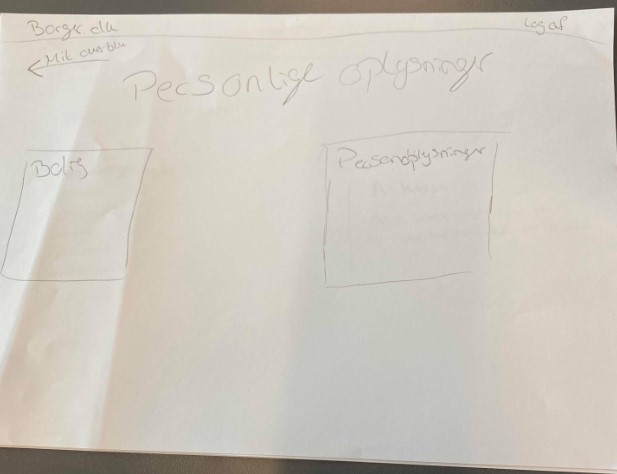 Borger.dk
Log af
← Mit overblik
Personlige oplysninger
Bolig
Personoplysninger